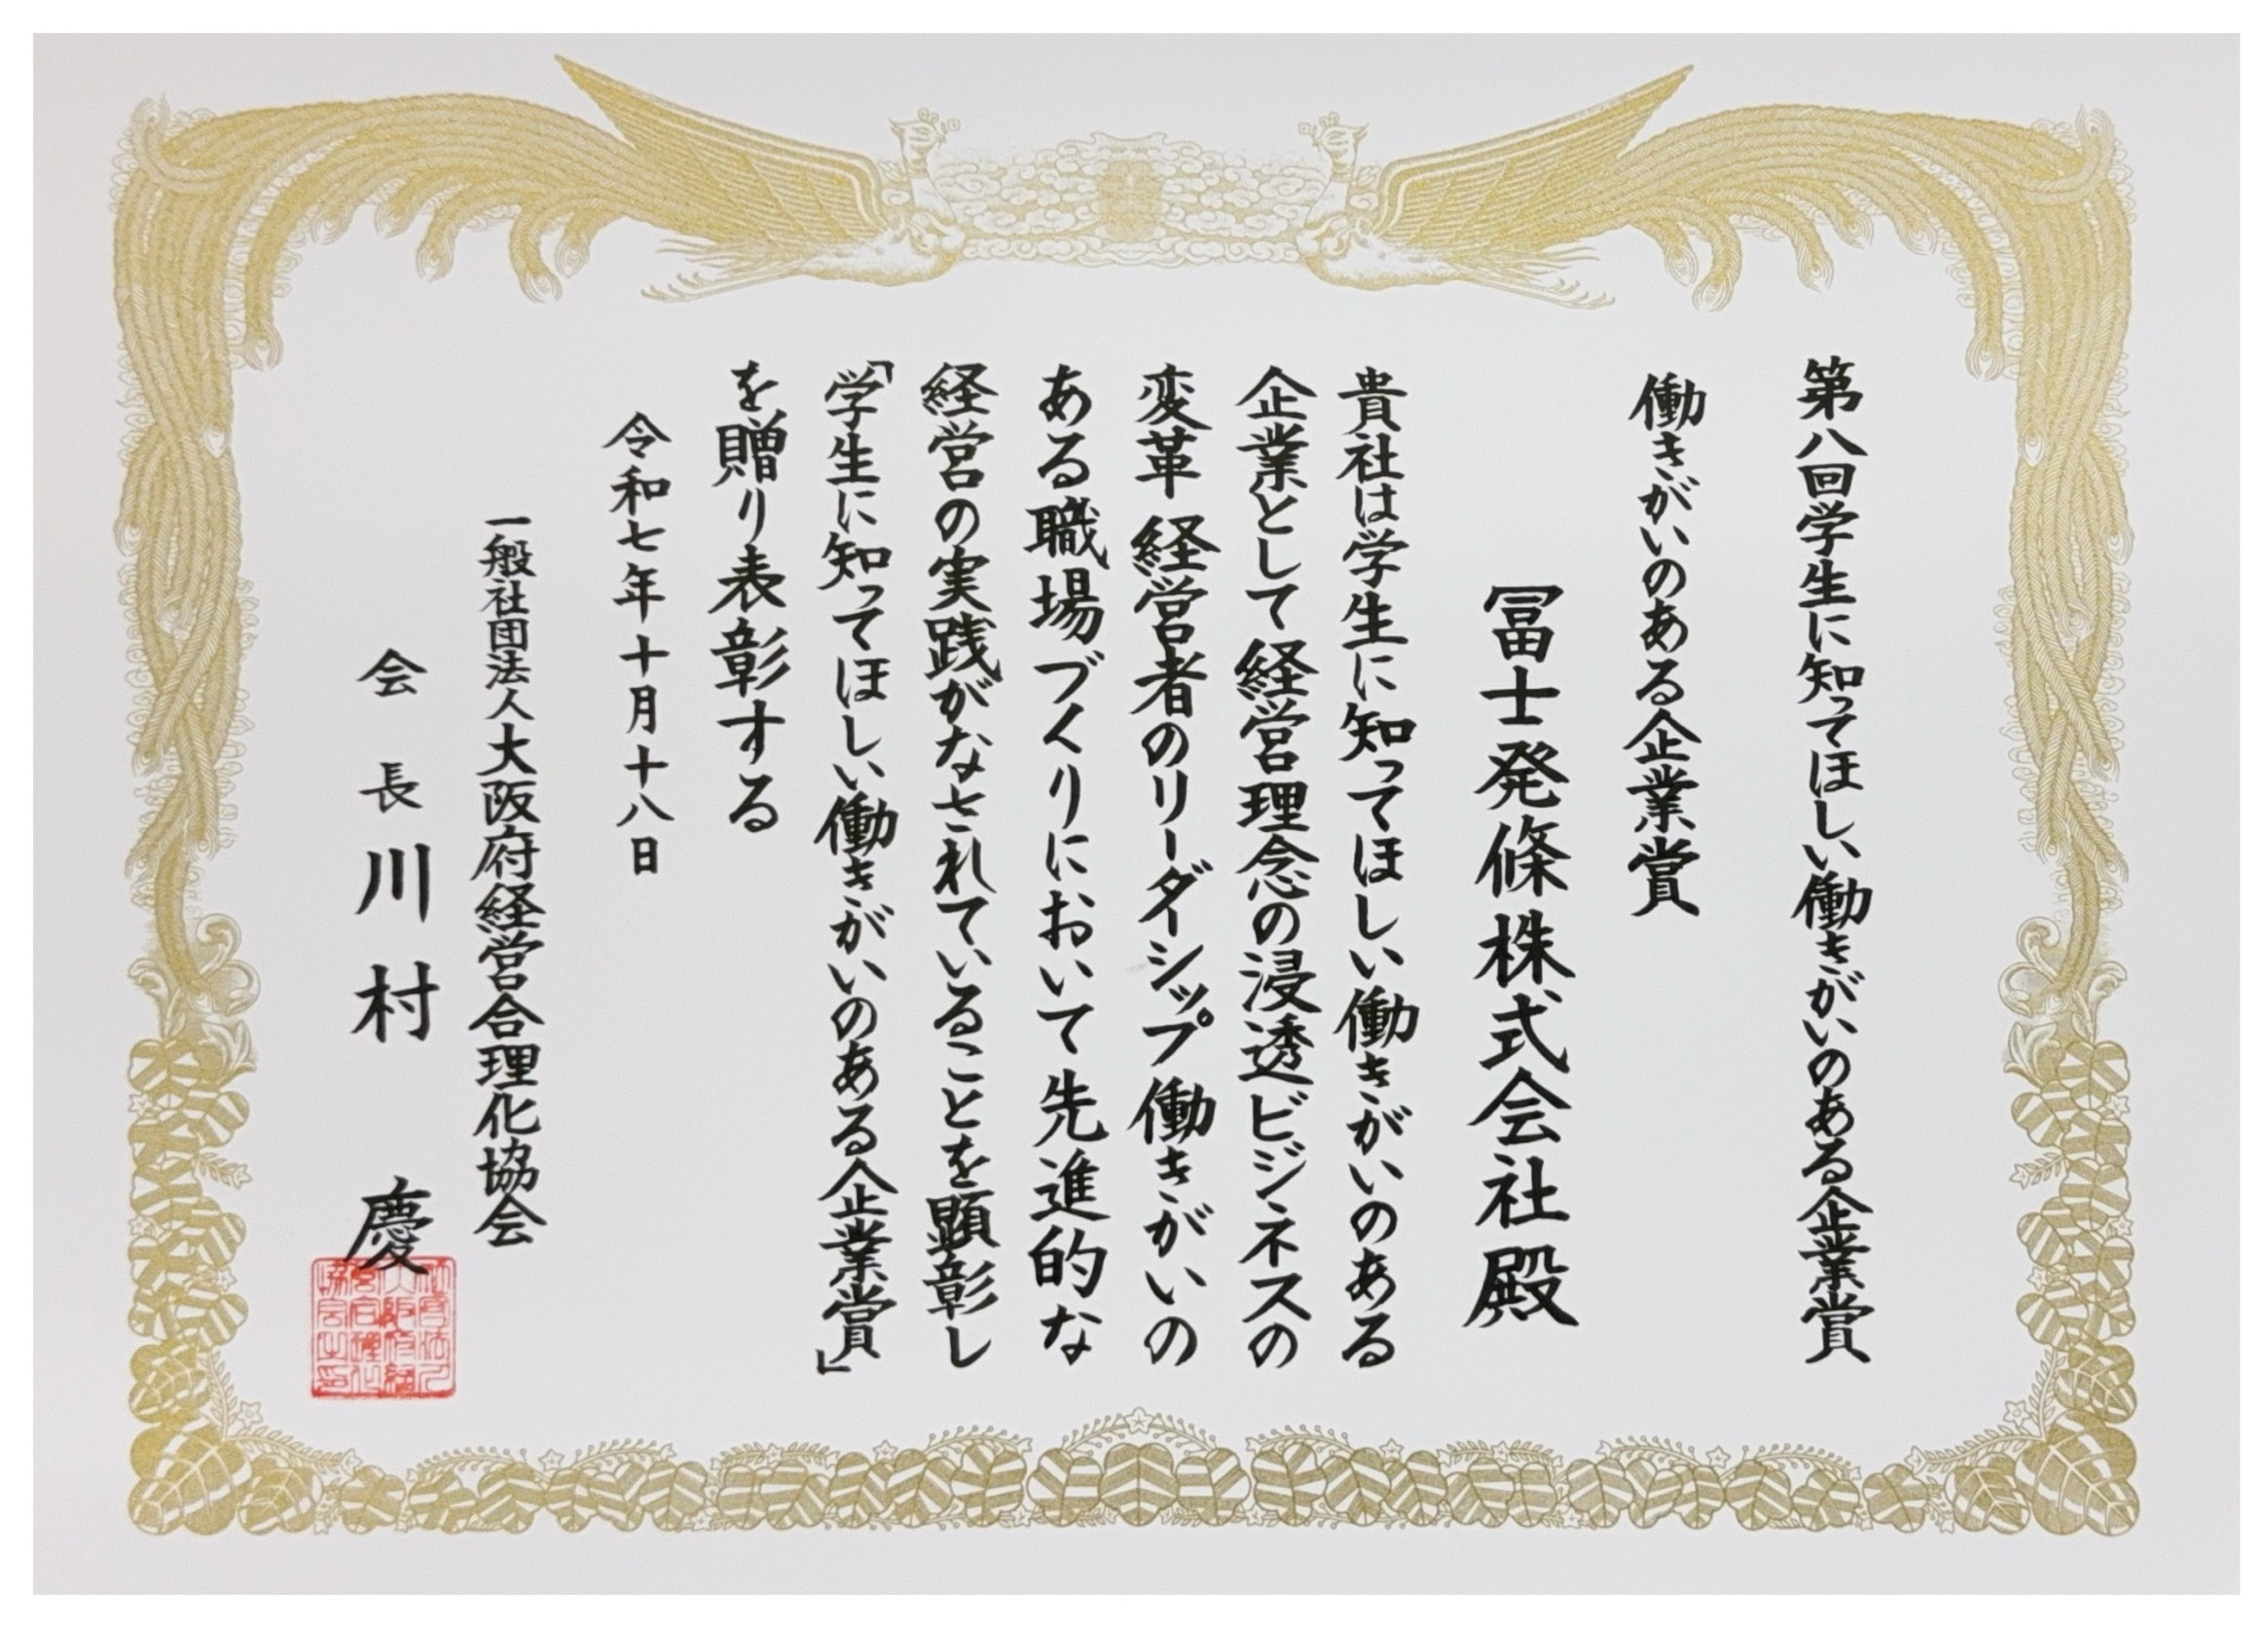 第八回学生に知ってほしい働きがいのある企業賞
働きがいのある企業賞
冨士発條株式会社殿
貴社は学生に知ってほしい働きがいのある
企業として経営理念の浸透ビジネスの
変革経営者のリーダーシップ働きがいの
ある職場づくりにおいて先進的な
経営の実践がなされていることを顕彰し
「学生に知ってほしい働きがいのある企業賞」
を贈り表彰する
令和七年十月十八日
一般社団法人大阪府経営合理化協会
会長川村慶